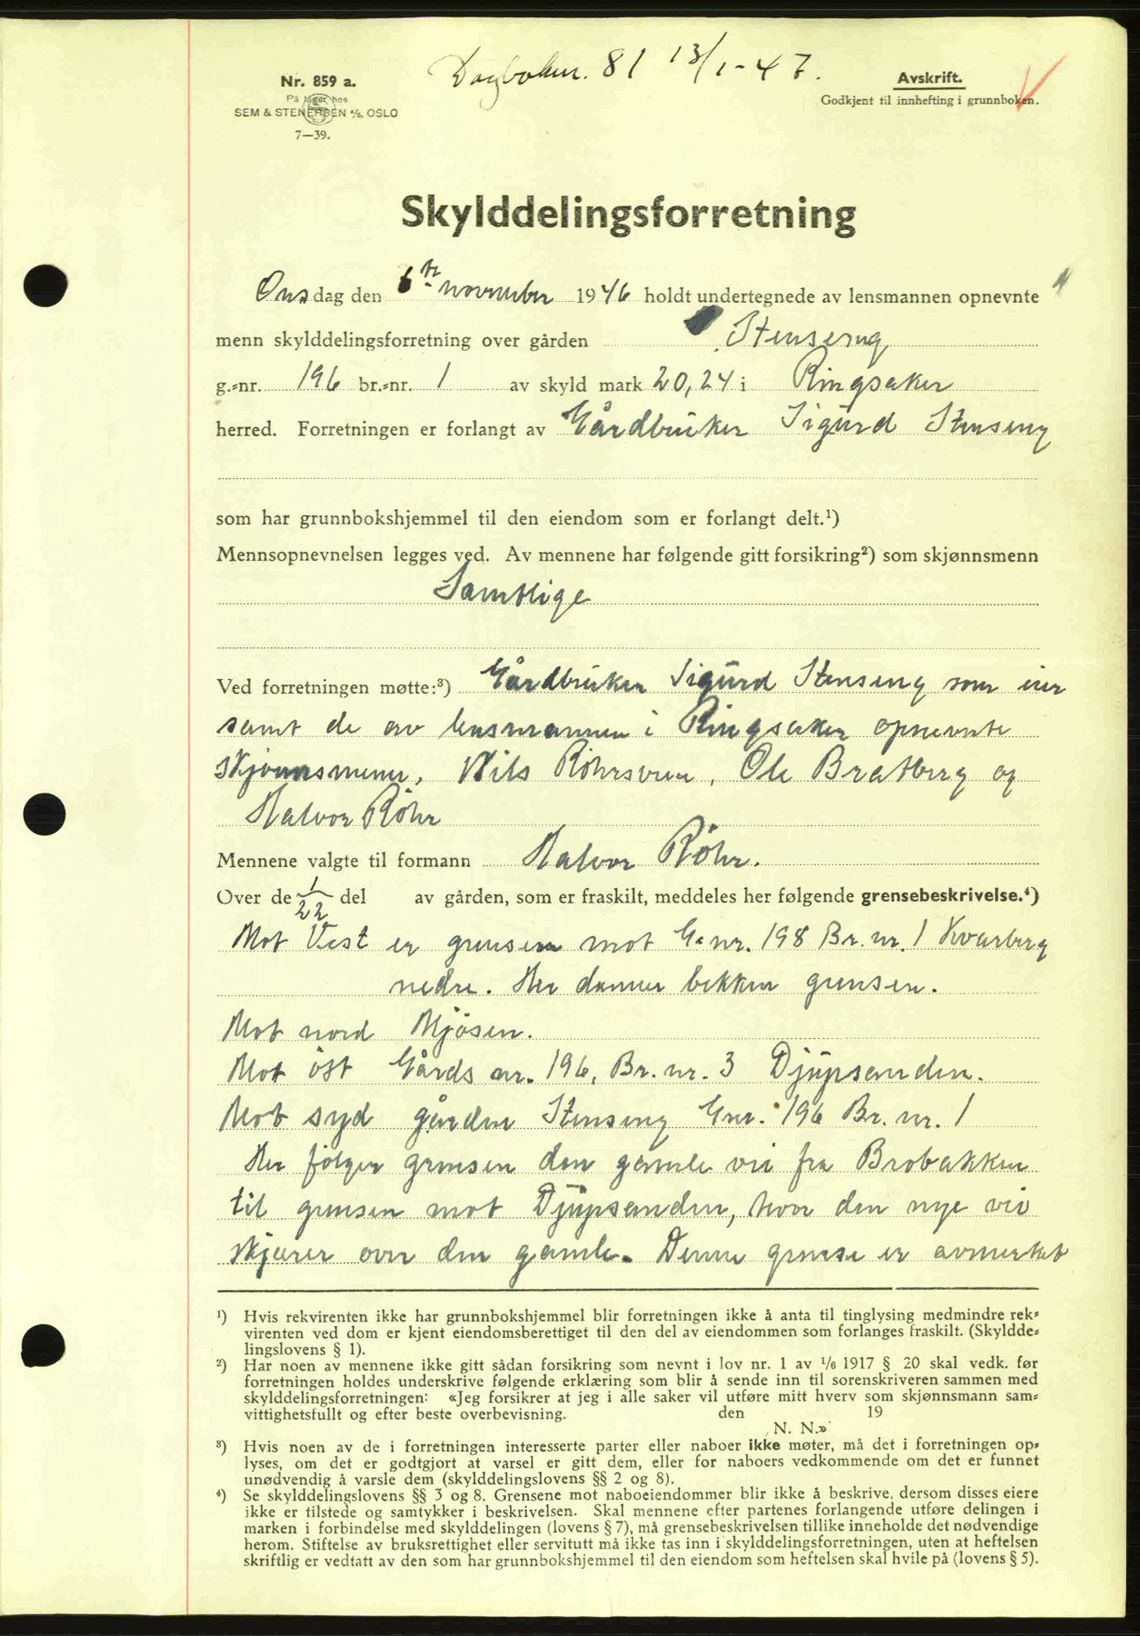 Dagboknr. 81 13/1-47.
Nr. 859 a.
På lager hos
SEM & STENERSEN A/S, OSLO
7—39.
Avskrift.
Godkjent til innhefting i grunnboken.
Skylddelingsforretning
Onsdag den 6te november 1946 holdt undertegnede av lensmannen opnevnte
menn skylddelingsforretning over gården Stenseng
g.-nr. 196 br.-nr. 1 av skyld mark 20,24 i Ringsaker
herred. Forretningen er forlangt av Gårdbruker Sigurd Stenseng
som har grunnbokshjemmel til den eiendom som er forlangt delt.¹)
Mennsopnevnelsen legges ved. Av mennene har følgende gitt forsikring²) som skjønnsmenn
Samtlige
Ved forretningen møtte:³) Gårdbruker Sigurd Stenseng som eier
samt de av lensmannen i Ringsaker opnevnte
skjønnsmenn, Nils Röhrsveen, Ole Bratberg og
Halvor Röhr
Mennene valgte til formann Halvor Röhr.
Over de 1/22 del av gården, som er fraskilt, meddeles her følgende grensebeskrivelse.⁴)
Mot Vest er grensen mot G.nr. 198 Br. nr. 1 Kvarberg
nedre. Her danner bekken grensen.
Mot nord Mjösen.
Mot öst Gårds nr. 196, Br. nr. 3 Djupsanden.
Mot syd gården Stenseng Gnr. 196 Br. nr. 1
Her følger grensen den gamle vei fra Brobakken
til grensen mot Djupsanden, hvor den nye vei
skjærer over den gamle. Denne grense er avmerket
¹) Hvis rekvirenten ikke har grunnbokshjemmel blir forretningen ikke å anta til tinglysing medmindre rek-
virenten ved dom er kjent eiendomsberettiget til den del av eiendommen som forlanges fraskilt. (Skyldde-
lingslovens § 1).
²) Har noen av mennene ikke gitt sådan forsikring som nevnt i lov nr. 1 av 1/6 1917 § 20 skal vedk. før
forretningen holdes underskrive følgende erklæring som blir å sende inn til sorenskriveren sammen med
skylddelingsforretningen: «Jeg forsikrer at jeg i alle saker vil utføre mitt hverv som skjønnsmann sam-
vittighetsfullt og efter beste overbevisning. den 19
N. N.»
³) Hvis noen av de i forretningen interesserte parter eller naboer ikke møter, må det i forretningen op-
lyses, om det er godtgjort at varsel er gitt dem, eller for naboers vedkommende om det er funnet
unødvendig å varsle dem (skylddelingslovens §§ 2 og 8).
⁴) Se skylddelingslovens §§ 3 og 8. Grensene mot naboeiendommer blir ikke å beskrive, dersom disses eiere
ikke er tilstede og samtykker i beskrivelsen. Skal mennene efter partenes forlangende utføre delingen i
marken i forbindelse med skylddelingen (lovens § 7), må grensebeskrivelsen tillike inneholde det nødvendige
herom. Stiftelse av bruksrettighet eller servitutt må ikke tas inn i skylddelingsforretningen, uten at heftelsen
skriftlig er vedtatt av den som har grunnbokshjemmel til den eiendom som heftelsen skal hvile på (lovens § 5).